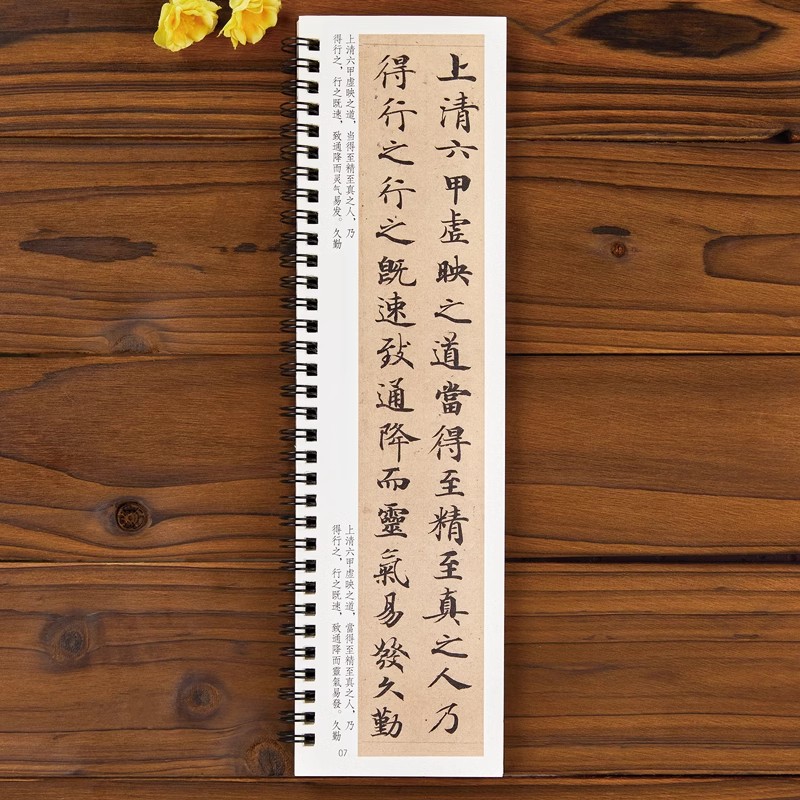 上清六甲虚映之道當得至精至真之人乃
得行之行之既速致通降而靈氣易發久勤
上清六甲虚映之道，当得至精至真之人，乃
得行之，行之既速，致通降而灵气易发。久勤
上清六甲虚映之道，當得至精至真之人，乃
得行之，行之既速，致通降而靈氣易發。久勤
07